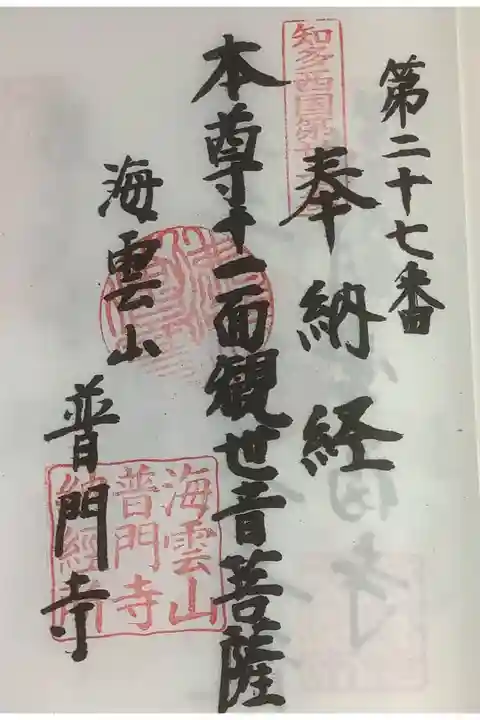 第二十七番
奉納経
知多西国第
本尊十一面観世音菩薩
海雲山
普門寺
海雲山
普門寺
納經所